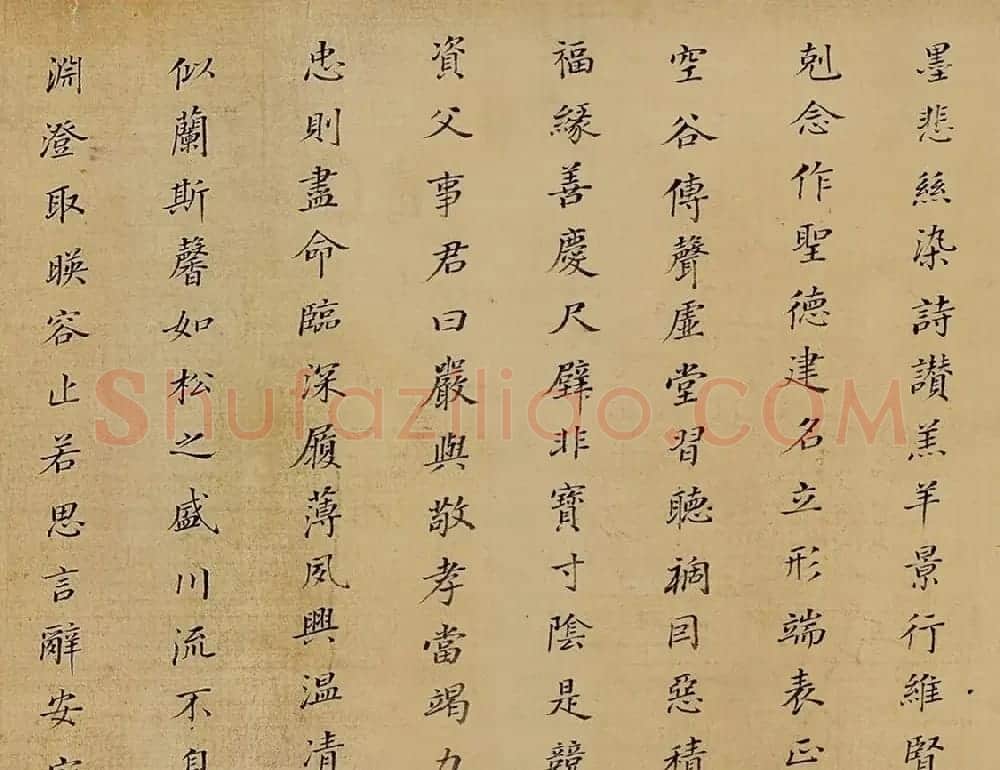 墨悲絲染詩讃羔羊景行維賢
剋念作聖德建名立形端表正
空谷傳聲虛堂習聽禍因惡積
福緣善慶尺璧非寶寸陰是競
資父事君曰嚴與敬孝當竭力
忠則盡命臨深履薄夙興温凊
似蘭斯馨如松之盛川流不
淵澄取暎容止若思言辭安
Shufaziliao.COM